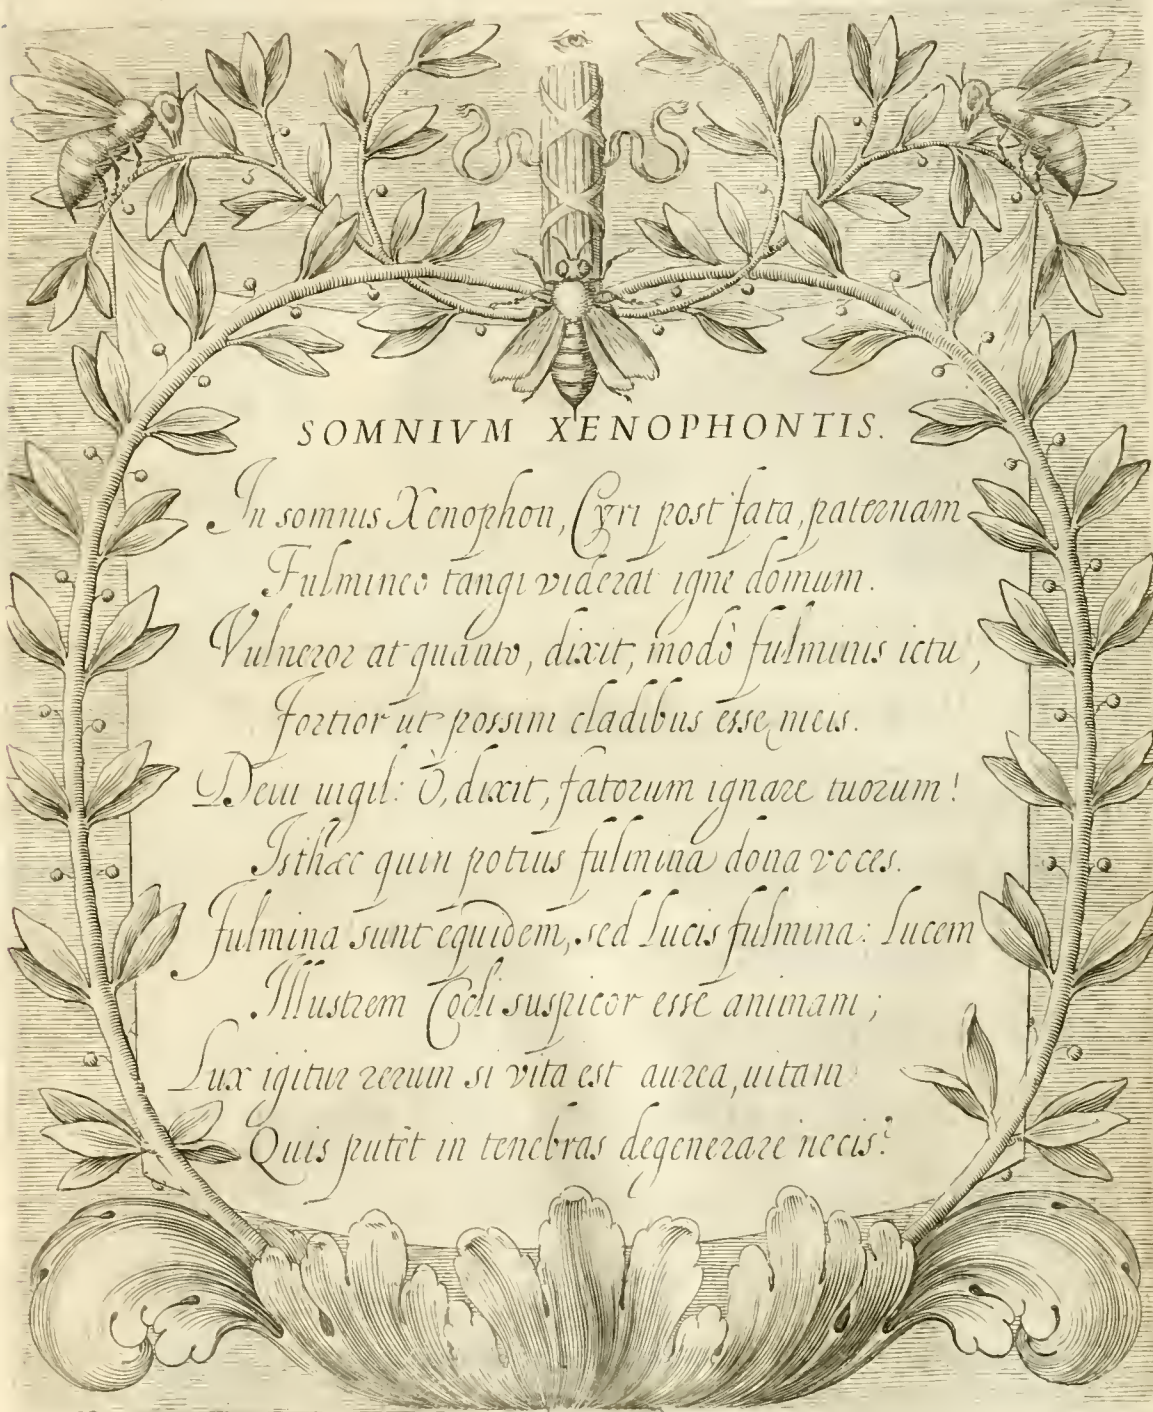 SOMNIVM XENOPHONTIS.
In somnis Xenophon, Cyri post fata, paternam
Fulmineo tangi viderat igne domum.
Vulneror at quanto, dixit, modò fulminis ictu,
Fortior ut possim cladibus esse meis.
Deiu uigil: Ò, dixit, fatorum ignare tuorum!
Isthæc quin potius fulmina dona voces.
Fulmina sunt equidem, sed lucis fulmina: lucem
Illustrem Coeli suspicor esse animam;
Lux igitur rerum si vita est aurea, uitam
Quis putet in tenebras degenerare necis?